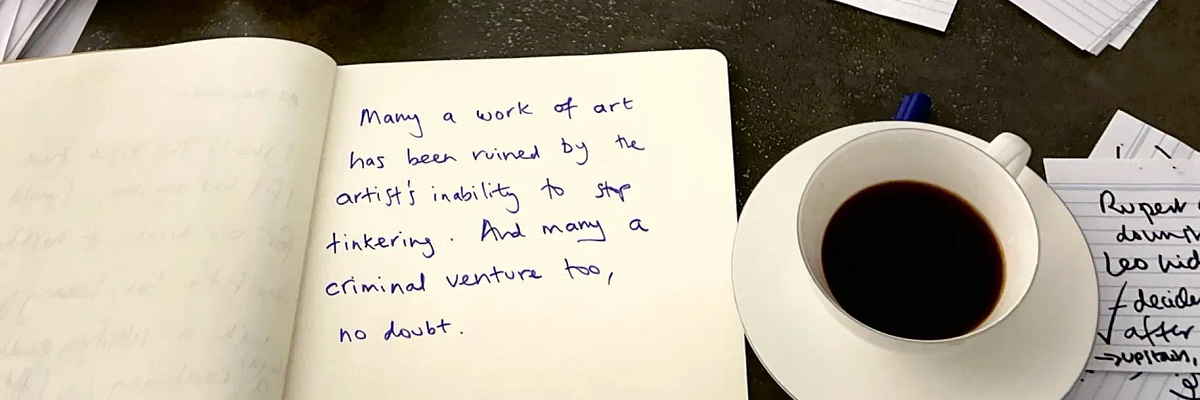 Many a work of art
has been ruined by the
artist's inability to stop
tinkering. And many a
criminal venture too,
no doubt.
Rupert
Leo
after
→upstairs,